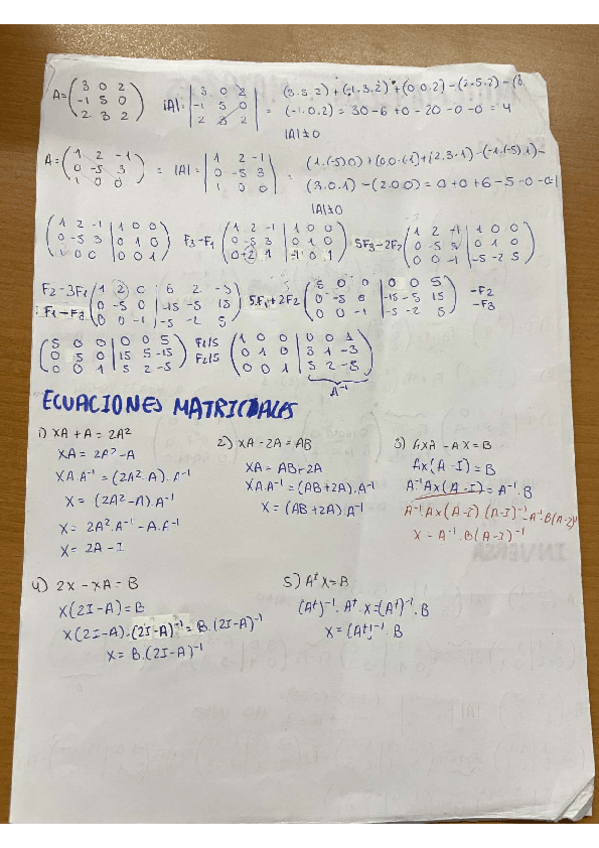 A = ( 3 0 2 / -1 5 0 / 2 3 2 ) |A| = | 3 0 2 / -1 5 0 / 2 3 2 | = (3.3.2) + (-1.3.2) + (0.0.2) - (2.5.2) -
(-1.0.2) = 30 - 6 + 0 - 20 - 0 - 0 = 4
|A| ≠ 0
A = ( 1 2 -1 / 0 -5 3 / 1 0 0 ) = |A| = | 1 2 -1 / 0 -5 3 / 1 0 0 | = (1.(-5).0) + (0.0.(-1)) + (2.3.1) - (-1.(-5).1) -
(3.0.1) - (2.0.0) = 0 + 0 + 6 - 5 - 0 - 0 = 1
|A| ≠ 0
( 1 2 -1 | 1 0 0 / 0 -5 3 | 0 1 0 / 1 0 0 | 0 0 1 ) F3-F1 ( 1 2 -1 | 1 0 0 / 0 -5 3 | 0 1 0 / 0 -2 1 | -1 0 1 ) 5F3-2F2 ( 1 2 -1 | 1 0 0 / 0 -5 3 | 0 1 0 / 0 0 -1 | -5 -2 5 )
F2-3F1 F1-F3 ( 1 2 0 | 6 2 -5 / 0 -5 0 | -15 -5 15 / 0 0 -1 | -5 -2 5 ) 5F1+2F2 ( 5 0 0 | 0 0 5 / 0 -5 0 | -15 -5 15 / 0 0 -1 | -5 -2 5 ) -F2 -F3
( 5 0 0 | 0 0 5 / 0 5 0 | 15 5 -15 / 0 0 1 | 5 2 -5 ) F1/5 F2/5 ( 1 0 0 | 0 0 1 / 0 1 0 | 3 1 -3 / 0 0 1 | 5 2 -5 )
A⁻¹
ECUACIONES MATRICIALES
1) XA + A = 2A²
XA = 2A² - A
XA A⁻¹ = (2A² - A). A⁻¹
X = (2A² - A). A⁻¹
X = 2A². A⁻¹ - A. A⁻¹
X = 2A - I
2) XA - 2A = AB
XA = AB + 2A
XA.A⁻¹ = (AB + 2A). A⁻¹
X = (AB + 2A). A⁻¹
3) AXA - AX = B
AX(A - I) = B
A⁻¹AX(A - I) = A⁻¹. B
A⁻¹. AX(A - I) (A - I)⁻¹ = A⁻¹. B(A - I)⁻¹
X = A⁻¹. B(A - I)⁻¹
4) 2X - XA = B
X(2I - A) = B
X(2I - A).(2I - A)⁻¹ = B.(2I - A)⁻¹
X = B.(2I - A)⁻¹
5) Aᵗ X = B
(Aᵗ)⁻¹. Aᵗ. X = (Aᵗ)⁻¹. B
X = (Aᵗ)⁻¹. B